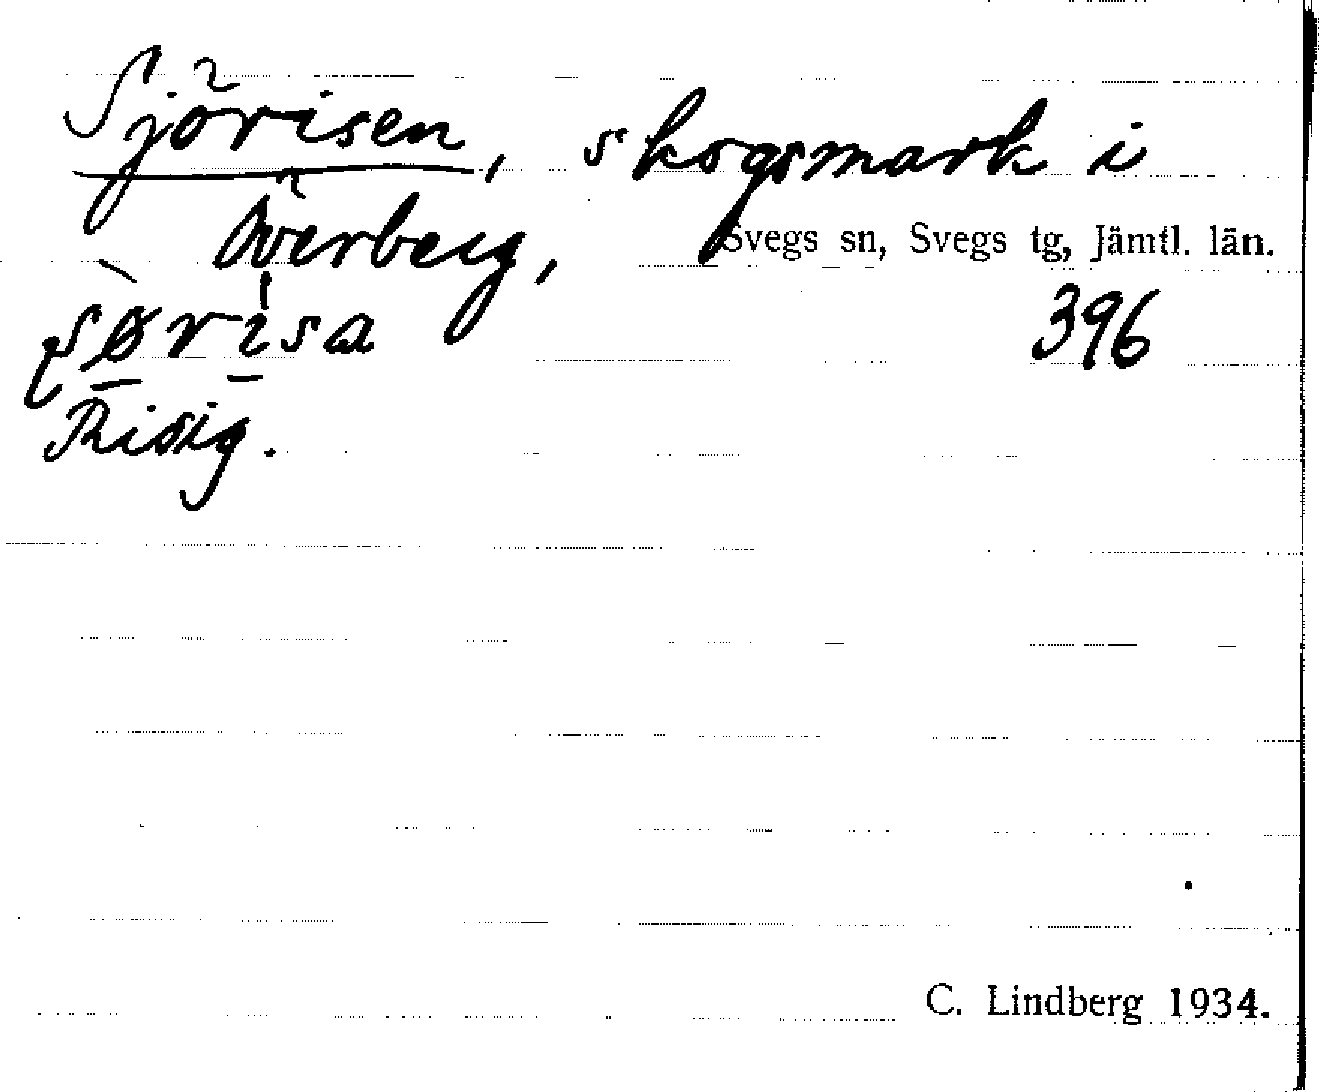 Sjörisen, skogsmark i
Överberg, Svegs sn, Svegs tg, Jämtl. län.
ʂø̀rı̍sa 396
Risig.
C. Lindberg 1934.